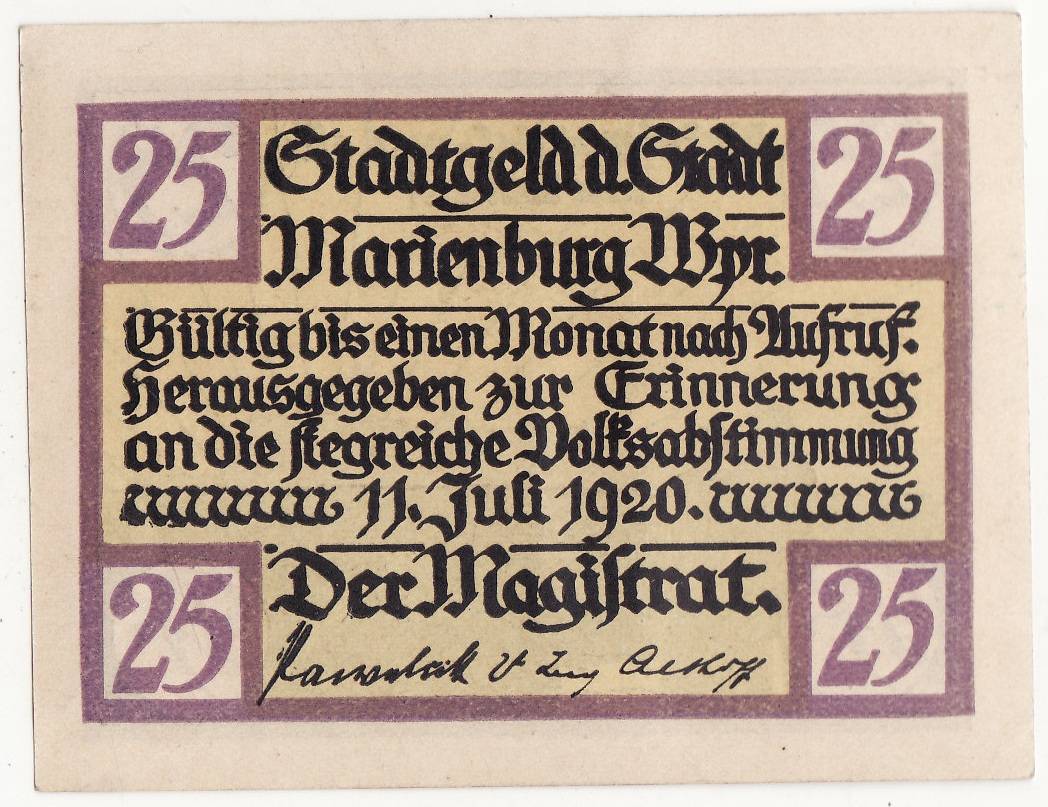 25 25
Stadtgeld d. Stadt
Marienburg Wpr.
Gültig bis einen Monat nach Aufruf.
Herausgegeben zur Erinnerung
an die siegreiche Volksabstimmung
11. Juli 1920.
Der Magistrat.
25 25